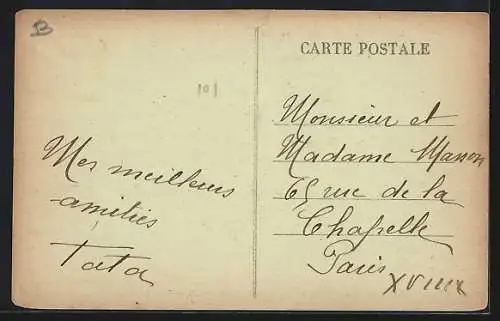 B
101
CARTE POSTALE
Mes meilleurs
amitiés
Tata
Monsieur et
Madame Masson
65 rue de la
Chapelle
Paris
XVIII